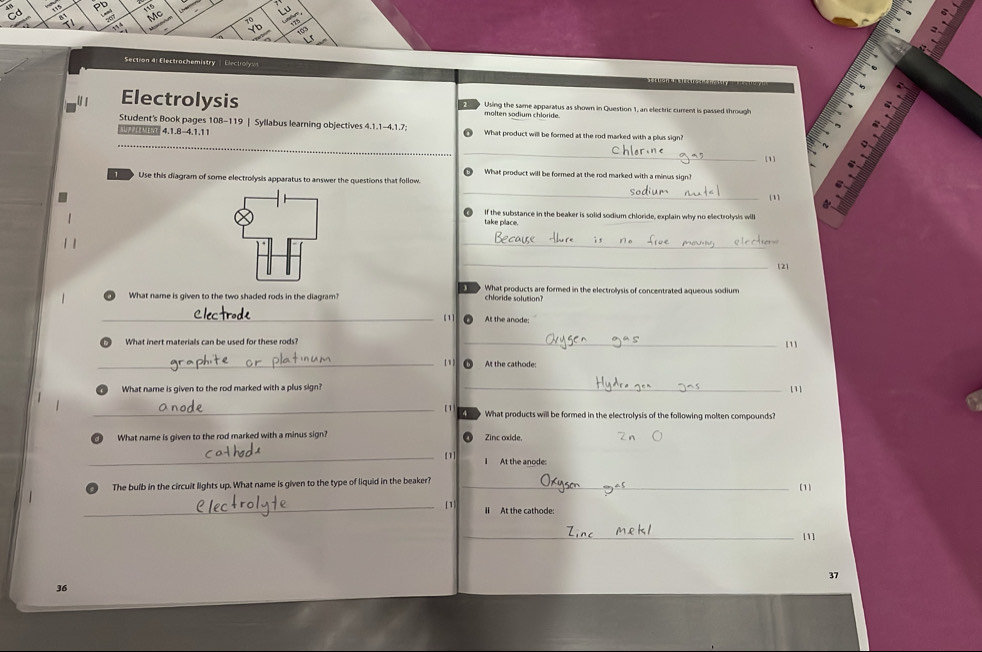 48
Cd
115
81
Tl
Pb
207
114
115
Mc
70
Yb
71
Lu
175
103
Lr
Section 4: Electrochemistry | Electrolysis
Electrolysis
Student's Book pages 108–119 | Syllabus learning objectives 4.1.1–4.1.7;
SUPPLEMENT 4.1.8–4.1.11
1 Use this diagram of some electrolysis apparatus to answer the questions that follow.
+ −
a What name is given to the two shaded rods in the diagram?
electrode [1]
b What inert materials can be used for these rods?
graphite or platinum [1]
c What name is given to the rod marked with a plus sign?
anode [1]
d What name is given to the rod marked with a minus sign?
cathode [1]
e The bulb in the circuit lights up. What name is given to the type of liquid in the beaker?
electrolyte [1]
36
2 Using the same apparatus as shown in Question 1, an electric current is passed through
molten sodium chloride.
a What product will be formed at the rod marked with a plus sign?
Chlorine gas [1]
b What product will be formed at the rod marked with a minus sign?
sodium metal [1]
c If the substance in the beaker is solid sodium chloride, explain why no electrolysis will
take place.
Because there is no free moving electrons
[2]
3 What products are formed in the electrolysis of concentrated aqueous sodium
chloride solution?
a At the anode:
Oxygen gas [1]
b At the cathode:
Hydrogen gas [1]
4 What products will be formed in the electrolysis of the following molten compounds?
a Zinc oxide. Zn O
i At the anode:
Oxygen gas [1]
ii At the cathode:
Zinc metal [1]
37